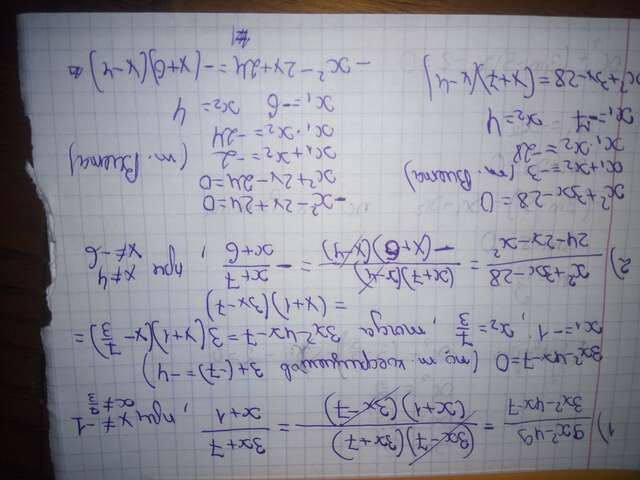 1) (9x²-49)/(3x²-4x-7) = ((3x-7)(3x+7))/((x+1)(3x-7)) = (3x+7)/(x+1), при x≠-1
3x²-4x-7=0 (по т. коэффициентов 3+(-7)=-4)
x₁=-1, x₂=7/3, тогда 3x²-4x-7=3(x+1)(x-7/3)=
=(x+1)(3x-7)
2) (x²+3x-28)/(24-2x-x²) = ((x+7)(x-4))/(-(x+6)(x-4)) = -(x+7)/(x+6), при x≠4 x≠-6
x²+3x-28=0
x₁+x₂=-3 (т. Виета)
x₁·x₂=-28
x₁=-7 x₂=4
x²+3x-28=(x+7)(x-4)
-x²-2x+24=0
x²+2x-24=0
x₁+x₂=-2 (т. Виета)
x₁·x₂=-24
x₁=-6 x₂=4
-x²-2x+24=-(x+6)(x-4)